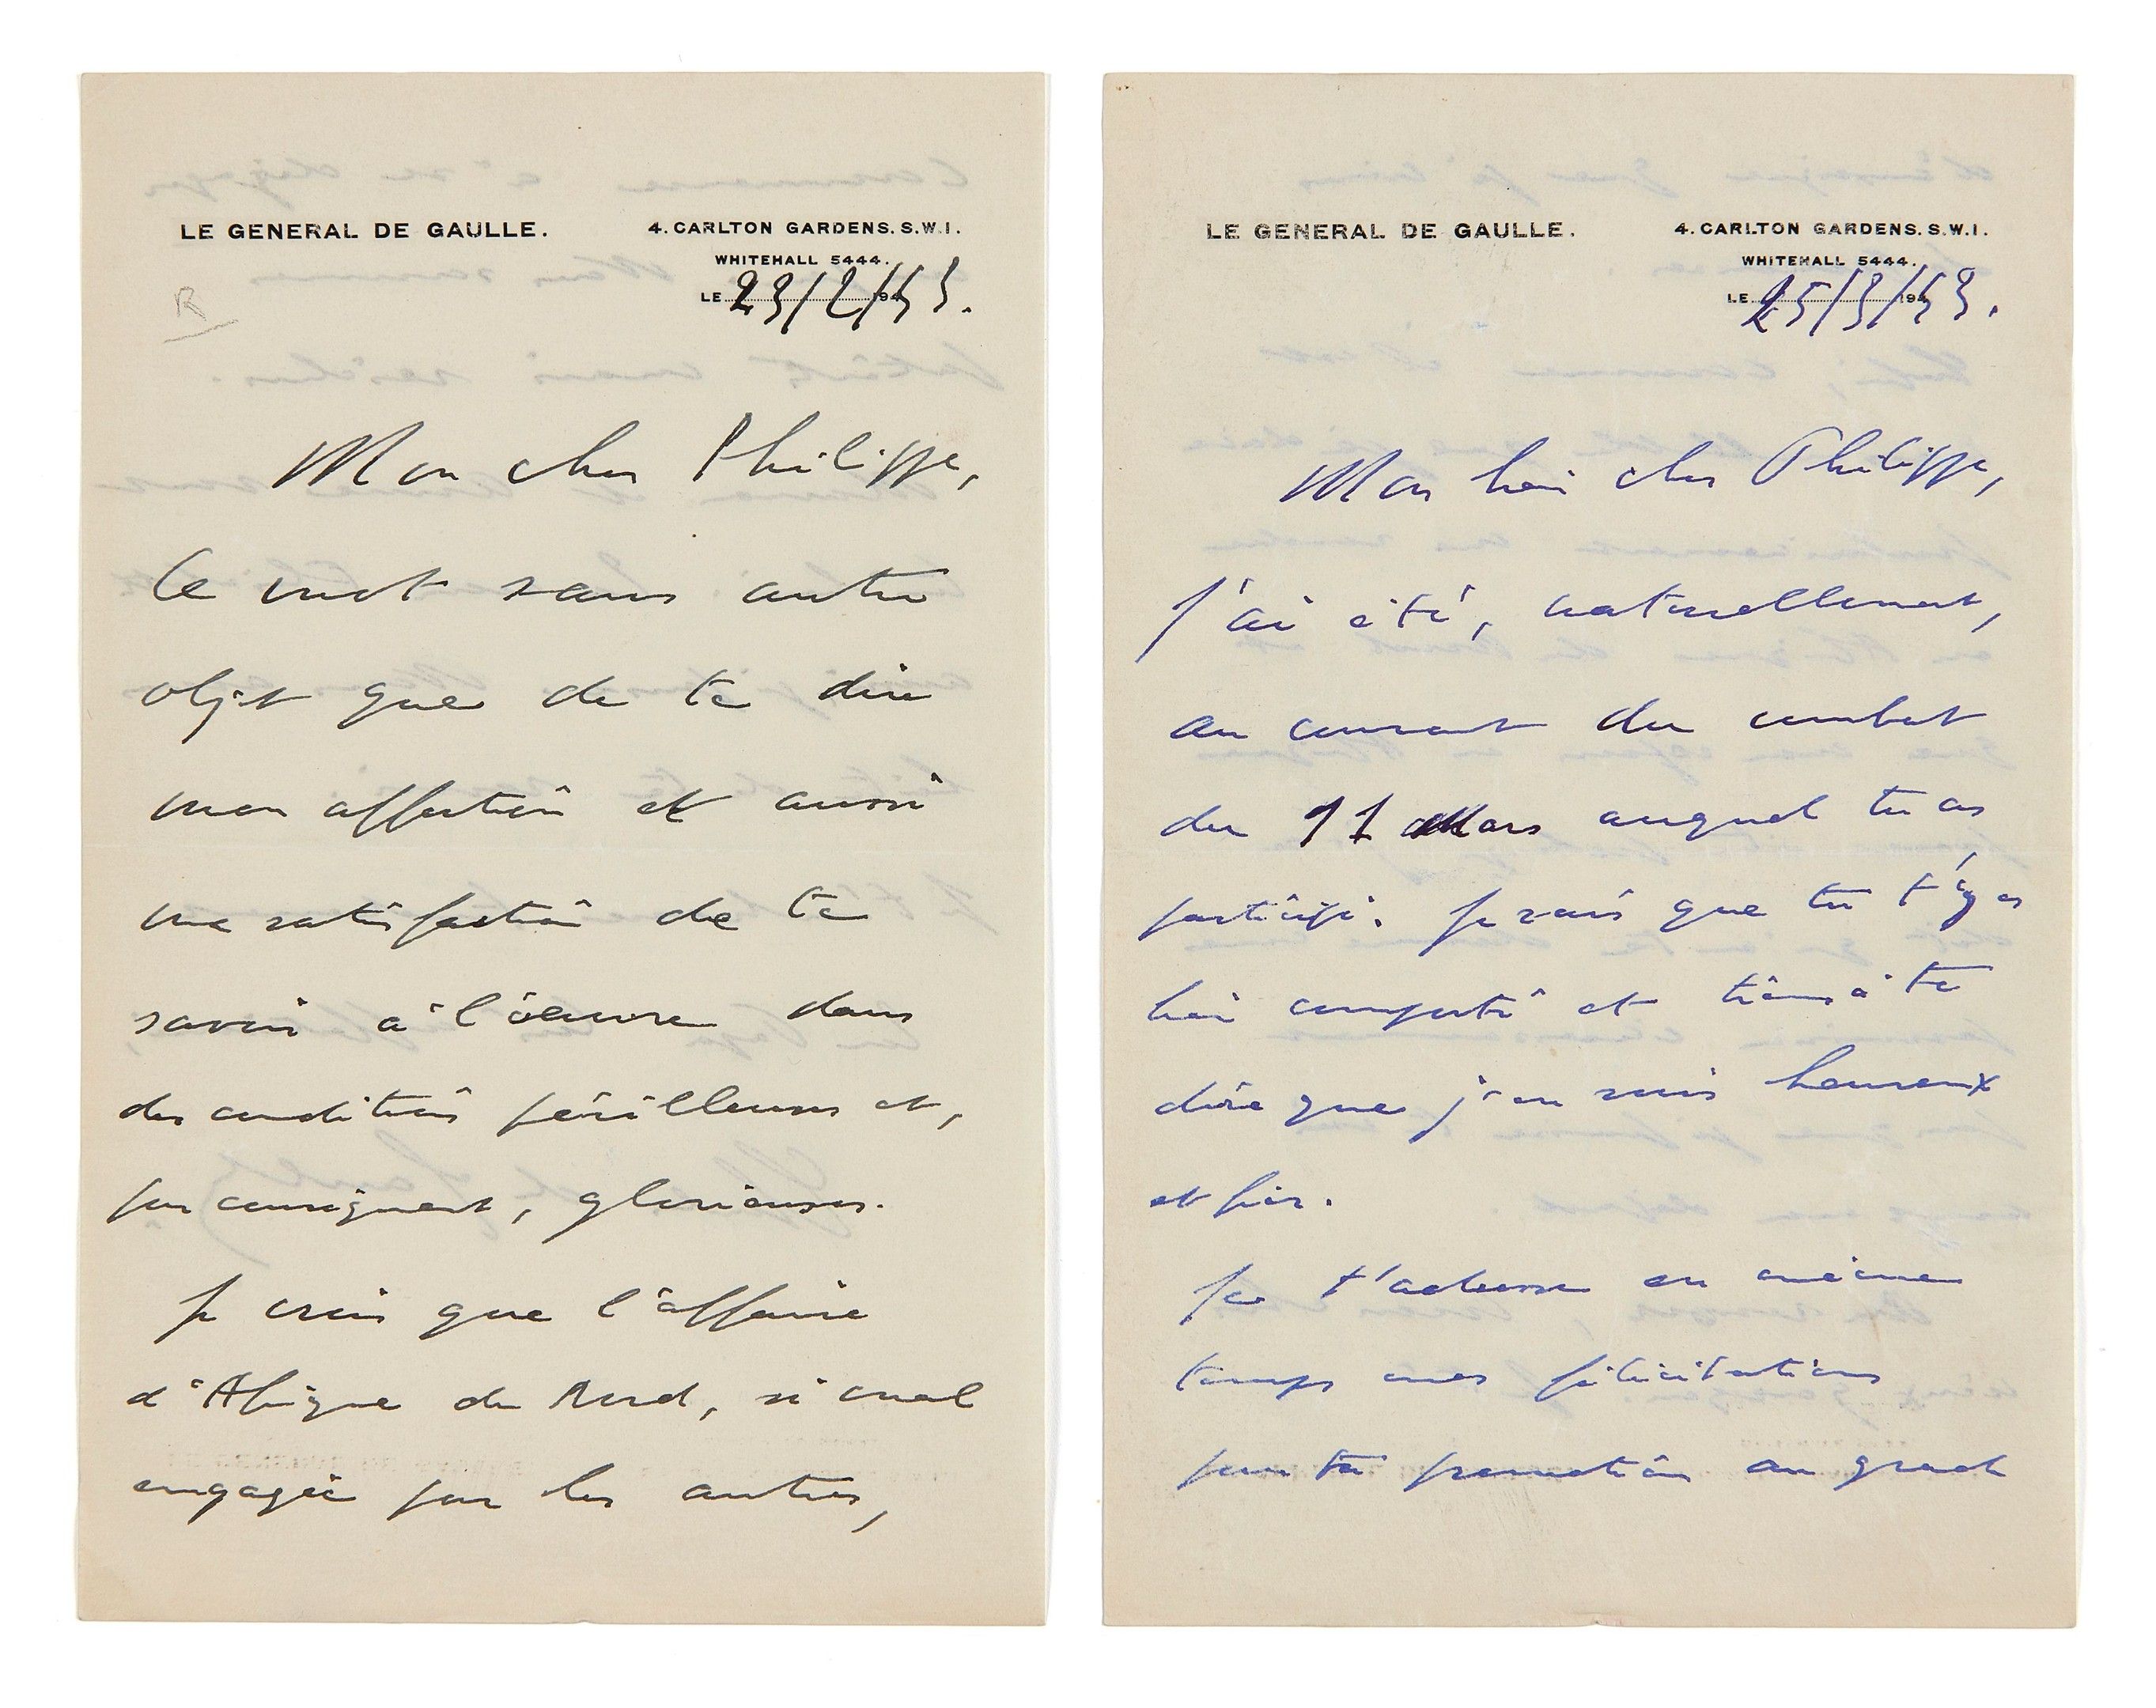 LE GENERAL DE GAULLE.
4. CARLTON GARDENS. S.W.1.
WHITEHALL 5444.
LE 23/2/43.
R
Mon cher Philippe,
Ce mot sans autre
objet que de te dire
mon affection et aussi
ma satisfaction de te
savoir à l'oeuvre dans
des conditions périlleuses et,
par conséquent, glorieuses.
Je crois que l'affaire
d'Afrique du Nord, si mal
engagée par les autres,
LE GENERAL DE GAULLE.
4. CARLTON GARDENS. S.W.1.
WHITEHALL 5444.
LE 25/3/43.
Mon bien cher Philippe,
J'ai été, naturellement,
au courant du combat
du 11 Mars auquel tu as
participé. Je sais que tu t'y es
bien comporté et tiens à te
dire que j'en suis heureux
et fier.
Je t'adresse en même
temps mes félicitations
pour ta promotion au grade